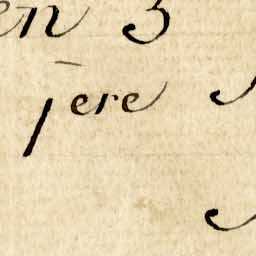 en 3
jere